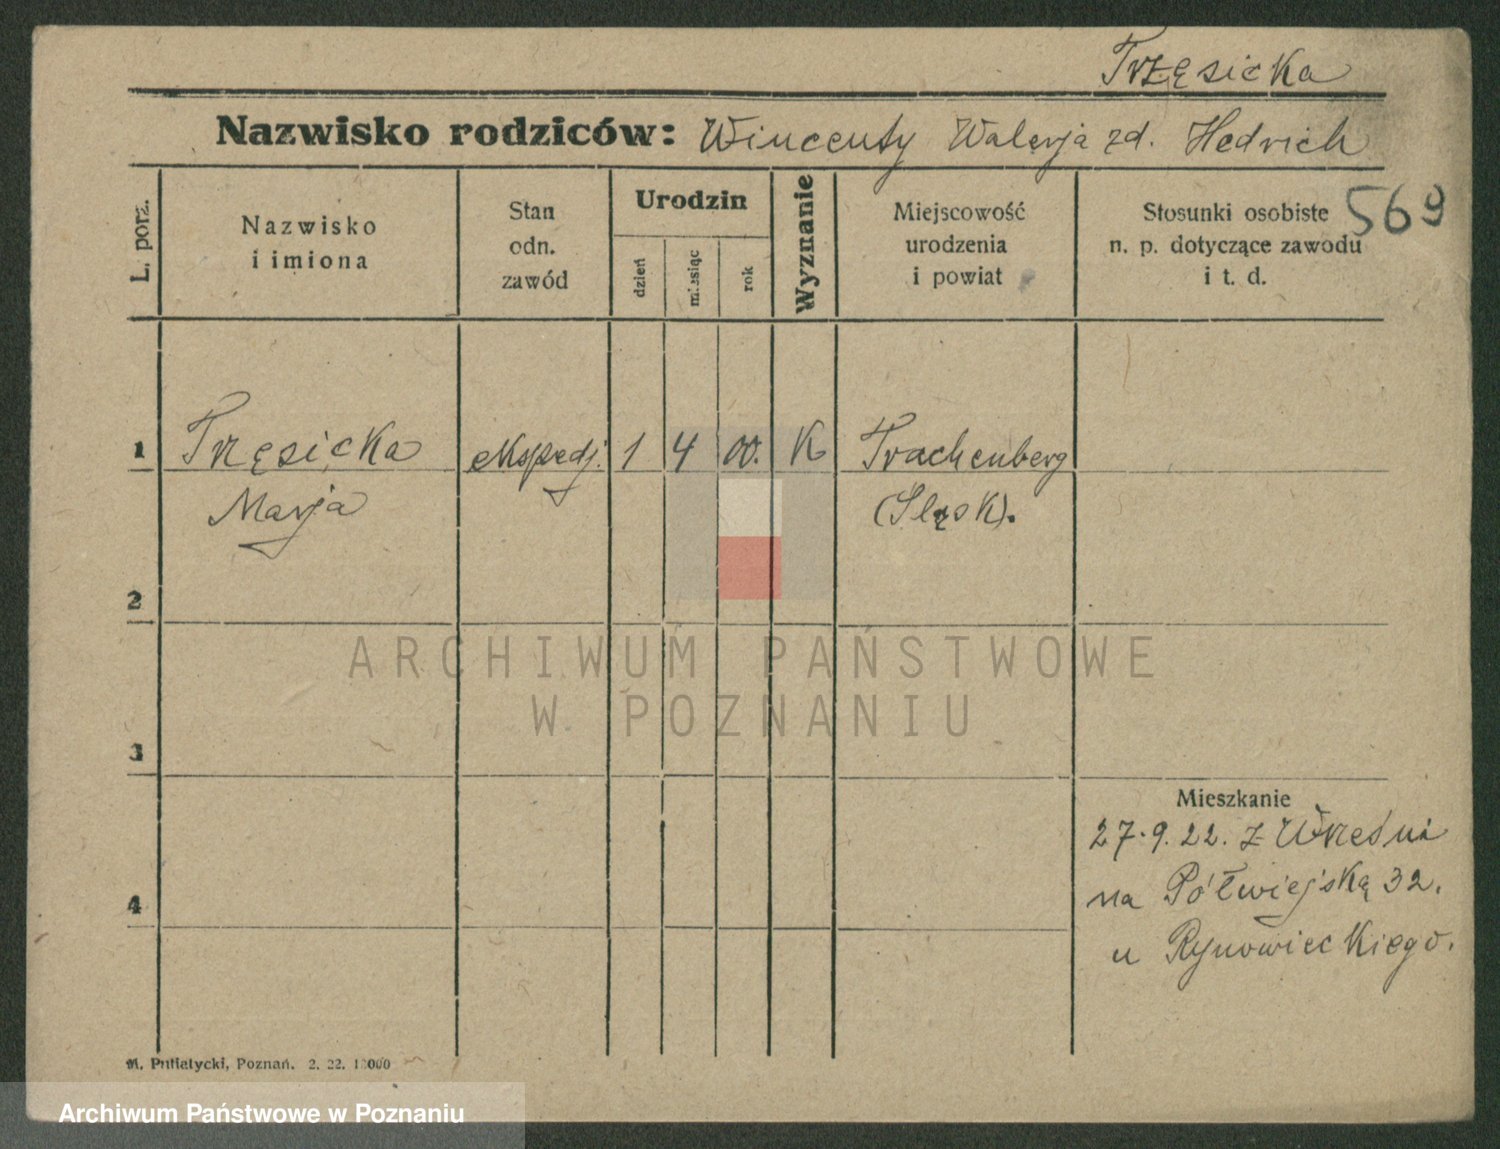 Trzęsicka
Nazwisko rodziców: Wincenty Walerja zd. Hedrich
569
L. porz.
Nazwisko
i imiona
Stan
odn.
zawód
Urodzin
dzień
miesiąc
rok
Wyznanie
Miejscowość
urodzenia
i powiat
Stosunki osobiste
n. p. dotyczące zawodu
i t. d.
1 Trzęsicka ekspedj. 1 4 00. K Trachenberg
Marja (Śląsk).
2
ARCHIWUM PAŃSTWOWE
W POZNANIU
3
Mieszkanie
27.9.22. z Wrześni
na Półwiejską 32.
4
u Rynowieckiego.
M. Putiatycki, Poznań. 2. 22. 10000
Archiwum Państwowe w Poznaniu